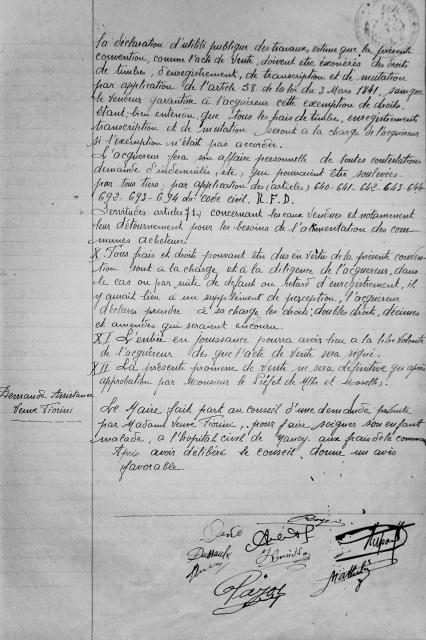 la déclaration d'utilité publique des travaux, estime que la présente
convention, comme l'acte de vente, doivent être exonérés des droits
de timbres, d'enregistrement, de transcription et de mutation
par application de l'article 58 de la loi du 3 Mars 1841, sans que
le vendeur garantisse à l'acquéreur cette exemption de droits,
étant bien entendu que tous les frais de timbre, enregistrement
transcription et de mutation seront à la charge de l'acquéreur
si l'exemption n'était pas accordée.
L'acquéreur fera son affaire personnelle de toutes contestations
demande d'indemnités, etc, qui pourraient être soulevées
par tous tiers, par application des (articles) 640-641-642-643-644
692-693-694 du Code civil.
Servitudes articles concernant les eaux vendues et notamment
leur détournement pour les besoins de l'alimentation des com
munes acheteuses.
X. Tous frais et droits pouvant être dus en vertu de la présente conven-
tion sont à la charge et à la diligence de l'acquéreur, dans
le cas où par suite de défaut ou retard d'enregistrement, il
y aurait lieu à un supplément de perception, l'acquéreur
déclare prendre à sa charge les droits, doubles droits, décimes
et amendes qui seraient encourus.
XI L'entrée en jouissance pourra avoir lieu à la libre volonté
de l'acquéreur dès que l'acte de vente sera signé.
XII La présente promesse de vente ne sera définitive qu'après
approbation par Monsieur le Préfet de Mthe et Moselle.
Demande Assistance
Veuve Fiorini
Le Maire fait part au conseil d'une demande
par Madame Veuve Fiorini, pour faire soigner son enfant
malade, à l'hôpital civil de Nancy aux frais de la commune
Après avoir délibéré le conseil donne un avis
favorable.